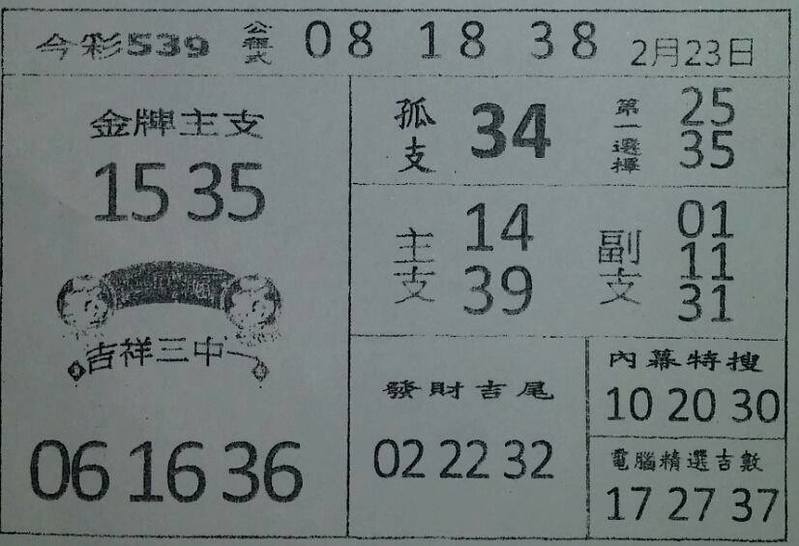 今彩539 公程式 08 18 38 2月23日
金牌主支
15 35
吉祥三中一
06 16 36
孤支 34
第一選擇 25 35
主支 14 39
副支 01 11 31
發財吉尾
02 22 32
內幕特搜
10 20 30
電腦精選吉數
17 27 37